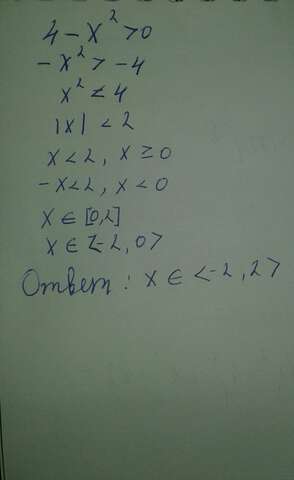 4 - x² > 0
-x² > -4
x² < 4
|x| < 2
x < 2, x ≥ 0
-x < 2, x < 0
x ∈ [0,2]
x ∈ <-2, 0>
Ответ: x ∈ <-2, 2>